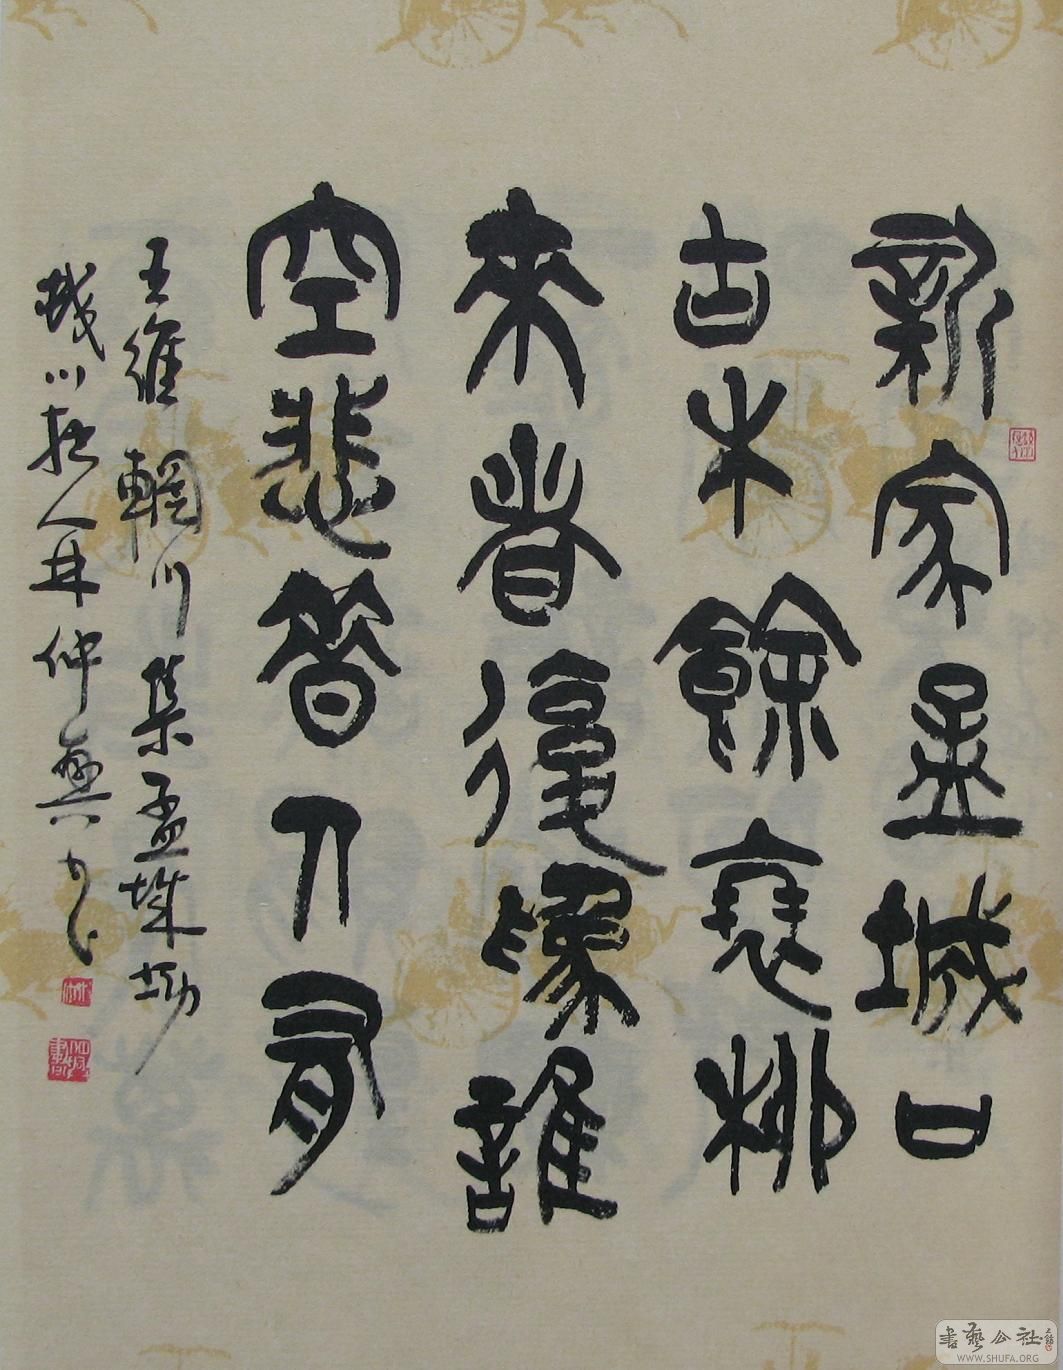 新家孟城口
古木餘衰柳
來者復為誰
空悲昔人有
王維輞川集孟城坳
川 人井仲興書
書藝公社
WWW.SHUFA.ORG